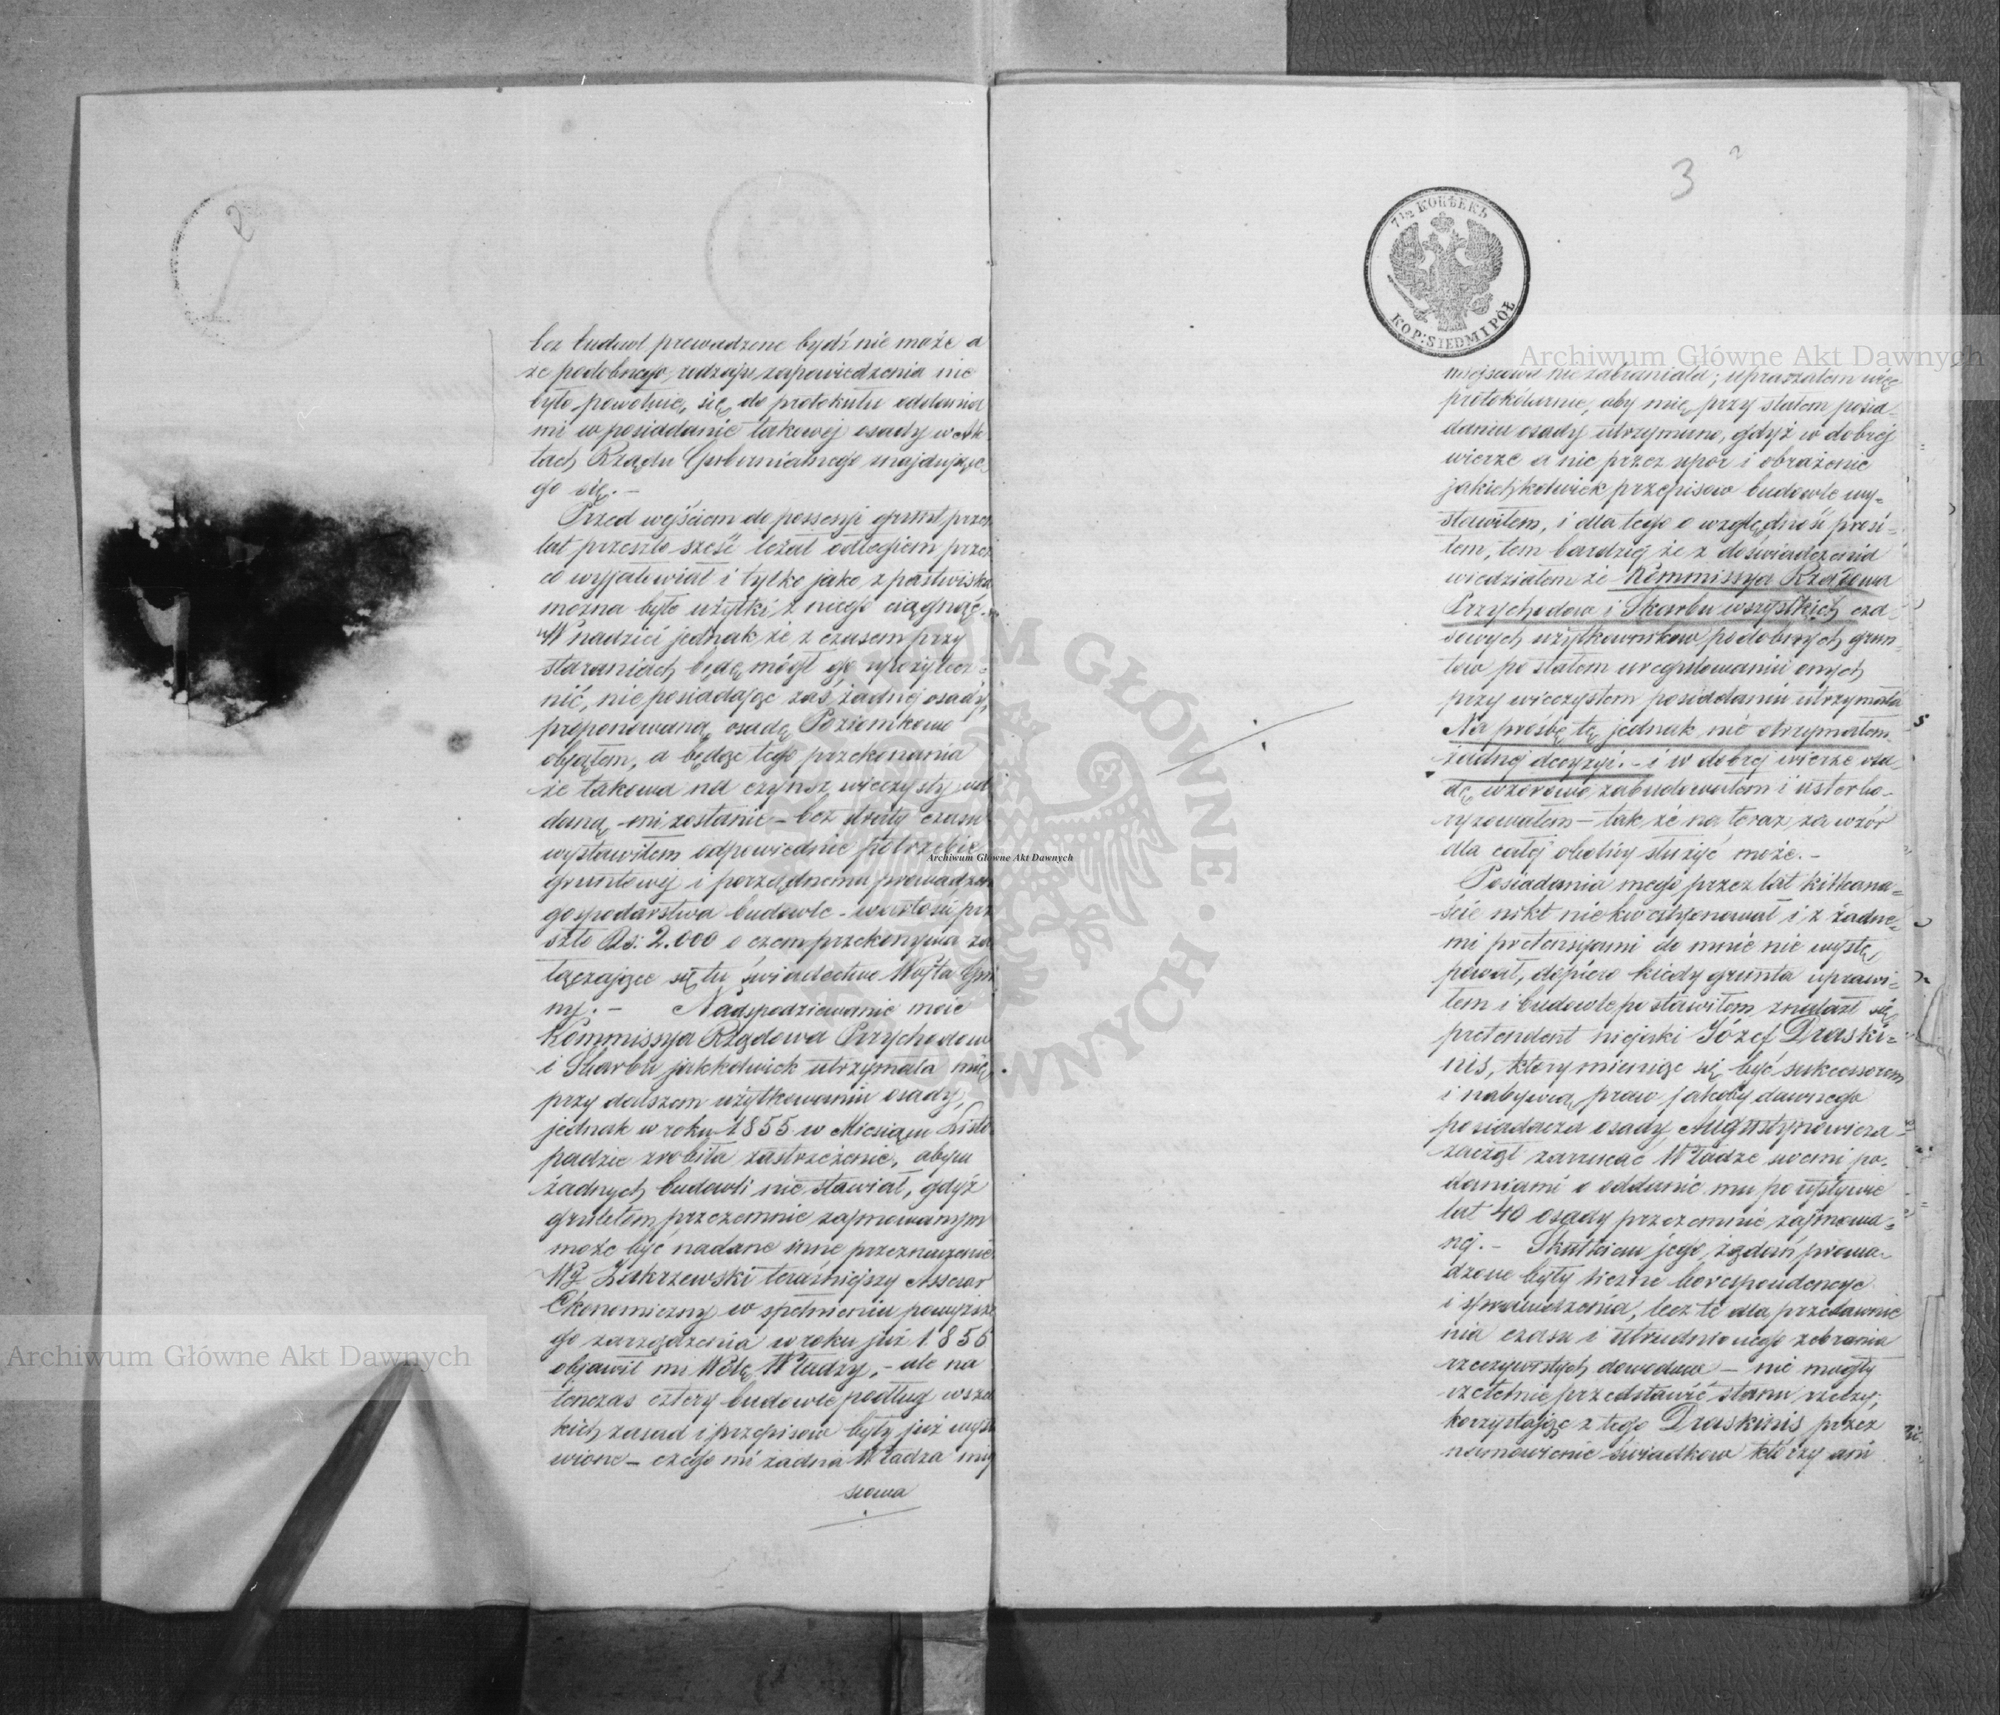 2
bez budowl prowadzone bydź nie może a
że podobnego rodzaju zapowiedzenia nie
było powołuję się do protokułu oddania
mi w posiadanie takowej osady w Ak-
tach Rządu Gubernialnego znajdujące
go się. –
Przed wejściem do possessyi grunt przez
lat przeszło sześć leżał odłogiem przez
co wyjałowiał i tylko jako z pastwiska
można było użytki z niego ciągnąć. –
W nadziei jednak że z czasem przy
staraniach będę mógł go użyżytecz-
nić, nie posiadając zaś żadnej osady,
proponowaną osadę Poziemkowo
objąłem, a będąc tego przekonania
że takowa na czynsz wieczysty od
daną mi zostanie – bez straty czasu
wystawiłem odpowiednie potrzebie
gruntowej i porządnemu prowadzen
gospodarstwa budowle – wartości prz
szło Rs: 2.000 o czem przekonywa za
łączające się tu świadectwo Wójta Gmi
ny. – Nadspodziewanie moie
Kommissya Rządowa Przychodow
i Skarbu jakkolwiek utrzymała mię
przy dalszem użytkowaniu osady,
jednak w roku 1855 w Miesiącu Listo
padzie zrobiła zastrzeżenie, abym
żadnych budowli nie stawiał, gdyż
gruntem przezemnie zajmowanym
może być nadane inne przeznaczenie
Wy Zakrzewski teraźniejszy Assesor
Ekonomiczny w spełnieniu powyższe
go zarządzenia w roku już 1856
objawił mi Wolę Władzy, – ale na
tenczas cztery budowle podług wszel
kich zasad i przepisow były już wysta
wione – czego mi żadna Władza miej
scowa
3
7 1/2 КОПѢЕКЪ
KOP: SIEDM I PÓŁ
miejscowa nie zabraniała; upraszałem więc
protokólarnie, aby mię przy stałem posia-
daniu osady utrzymano, gdyż w dobrej
wierze a nie przez upor i obrażenie
jakichkolwiek przepisow budowle wy-
stawiłem, i dla tego o względność prosi-
łem, tem bardziej że z doświadczenia
wiedziałem że Kommissya Rządowa
Przychodow i Skarbu wszystkich cza-
sowych użytkownikow podobnych grun-
tow po stałem uregulowaniu onych
przy wieczystem posiadaniu utrzymała
Na prośbę tę jednak nie otrzymałem
żadnej decyzyi. – i w dobrej wierze osa-
dę wzorowo zabudowałem i usterko-
ryzowałem – tak że na teraz za wzór
dla całej okolicy służyć może. –
Posiadania mego przez lat kilkana-
ście nikt nie kwestyonował i z żadne-
mi pretensyami do mnie nie wystę
pował, dopiero kiedy grunta uprawi-
łem i budowle postawiłem znalazł się
pretendent niejaki Józef Draski-
nis, który mieniąc się być sukcessorem
i nabywcą praw jakoby dawnego
posiadacza osady Augustynowicza
zaczął zarzucać Władze swemi po-
daniami o oddanie mu po upływie
lat 40 osady przezemnie zajmowa-
nej. – Skutkiem jego żądań prowa-
dzone były liczne korespondencye
i sprawdzenia, lecz te dla przedawnie
nia czasu i utrudnionego zebrania
rzeczywistych dowodow – nie mogły
rzetelnie przedstawić stanu rzeczy;
korzystając z tego Draskinis przez
namówienie świadkow którzy ani
Archiwum Główne Akt Dawnych
Archiwum Główne Akt Dawnych
Archiwum Główne Akt Dawnych